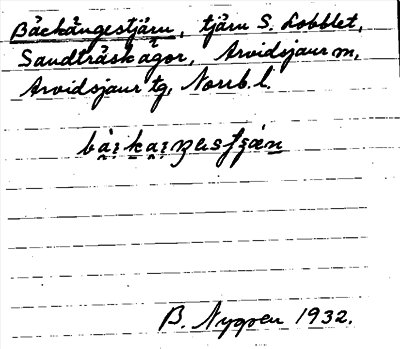 Bäckängestjärn, tjärn S. Lobblet,
Sandträskågor, Arvidsjaur m,
Arvidsjaur tg, Norrb. l.
B. Nygren 1932.